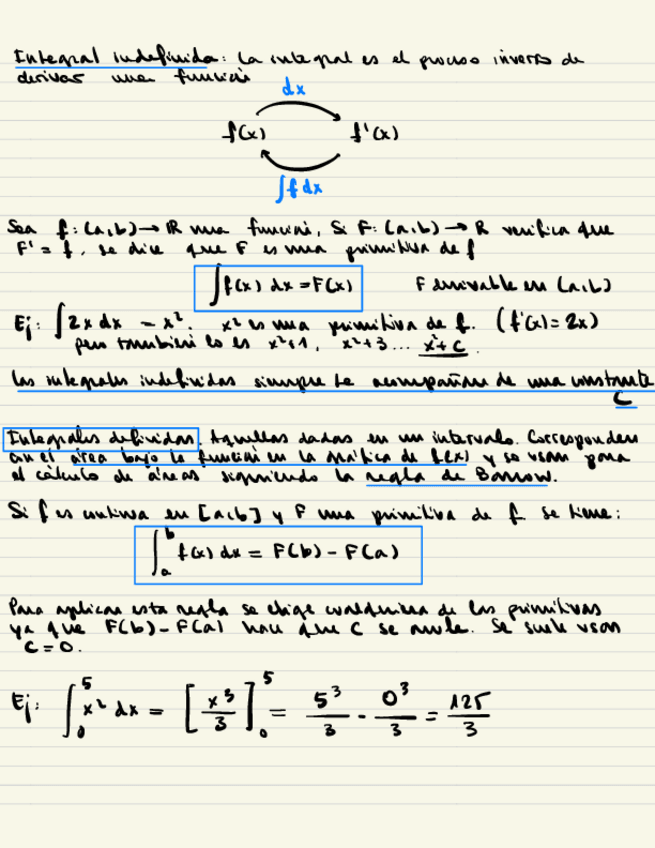 Integral indefinida: La integral es el proceso inverso de
derivar una función
dx
f(x) f'(x)
∫f dx
Sea f: (a,b) → R una función, Si F: (a,b) → R verifica que
F' = f, se dice que F es una primitiva de f
∫f(x) dx = F(x) F derivable en (a,b)
Ej: ∫2x dx = x². x² es una primitiva de f. (f'(x) = 2x)
pero también lo es x²+1, x²+3... x²+C
Las integrales indefinidas siempre se acompañan de una constante
C
Integrales definidas. Aquellas dadas en un intervalo. Corresponden
con el área bajo la función en la gráfica de f(x) y se usan para
el cálculo de áreas siguiendo la regla de Barrow.
Si f es continua en [a,b] y F una primitiva de f se tiene:
∫ₐᵇ f(x) dx = F(b) - F(a)
Para aplicar esta regla se elige cualquiera de las primitivas
ya que F(b) - F(a) hace que C se anule. Se suele usar
C = 0.
Ej: ∫₀⁵ x² dx = [x³/3]₀⁵ = 5³/3 - 0³/3 = 125/3